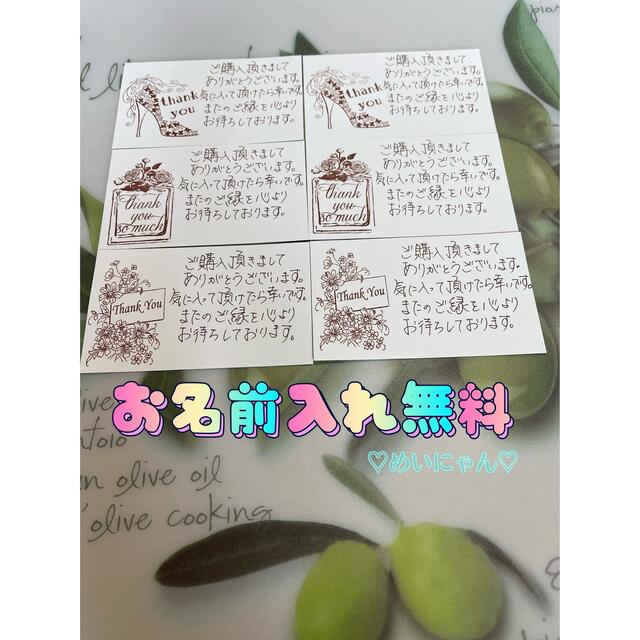 ご購入頂きまして
ありがとうございます。
気に入って頂けたら幸いです。
またのご縁を心より
お待ちしております。
thank
you
ご購入頂きまして
ありがとうございます。
気に入って頂けたら幸いです。
またのご縁を心より
お待ちしております。
thank
you
ご購入頂きまして
ありがとうございます。
気に入って頂けたら幸いです。
またのご縁を心より
お待ちしております。
thank
you
so much
ご購入頂きまして
ありがとうございます。
気に入って頂けたら幸いです。
またのご縁を心より
お待ちしております。
thank
you
so much
ご購入頂きまして
ありがとうございます。
気に入って頂けたら幸いです。
またのご縁を心より
お待ちしております。
Thank You
ご購入頂きまして
ありがとうございます。
気に入って頂けたら幸いです。
またのご縁を心より
お待ちしております。
Thank You
お名前入れ無料
♡めいにゃん♡
olive oil
olive cooking